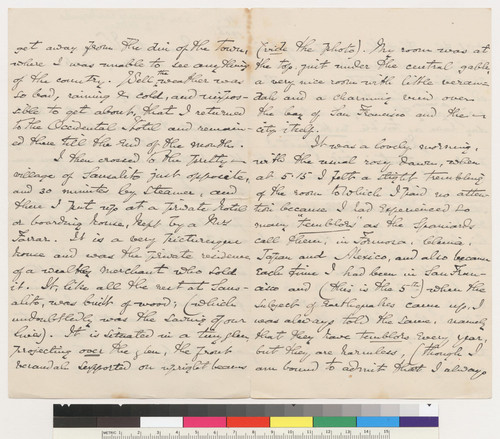 get away from the din of the Town,
where I was unable to see anything
of the country. Well the weather was
so bad, raining & cold, and impos-
sible to get about, that I returned
to the Occidental Hotel and remain-
ed there till the end of the month.
I then crossed to the pretty
village of Sausalito just opposite,
and 30 minutes by steamer, and
there I put up at a private hotel
or boarding house, kept by a Mrs
Farrar. It is a very picturesque
house and was the private residence
of a wealthy merchant who sold
it. It, like all the rest at Saus-
alito, was built of wood; (which
undoubtedly was the saving of our
lives). It is situated in a tiny glen
projecting over the glen, the front
verandah supported on upright beams
(vide the photo). My room was at
the top, just under the central gable,
a very nice room with little veran-
dah and a charming view over
the bay of San Francisco and the
city itself.
It was a lovely morning,
with the usual rosy dawn, when
at 5.15 I felt a slight trembling
of the room to which I paid no atten-
tion because I had experienced so
many temblors as the Spaniards
call them, in Formosa, China,
Japan and Mexico, and also because
each time I had been in San Fran-
cisco and (this is the 5th) when the
subject of Earthquakes came up, I
was always told the same, namely
that they have temblors every year,
but they are harmless, (though I
am bound to admit that I always
METRIC 1 2 3 4 5 6 7 8 9 10 11 12 13 14 15